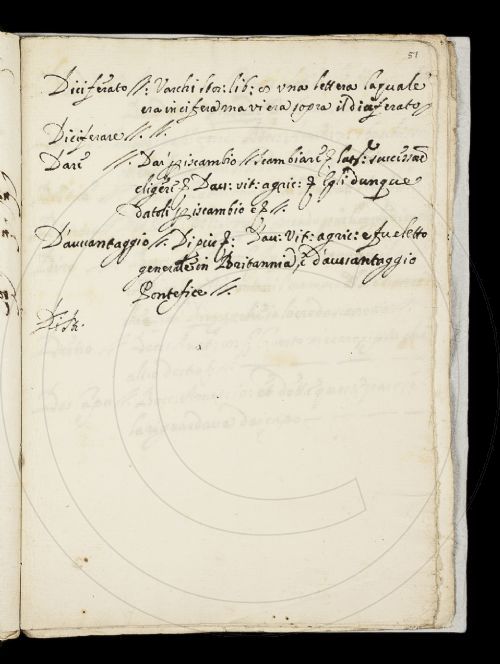 51
Diciferato //: Varchi stor: lib: 10 vna lettera laquale
era incifera ma vi era sopra il diciferato
Diciferare //. //.
Dare //. Da p iscambio // scambiare
eligere Dau: vit: agric: Egli dunque
datoli p iscambio //.
D'auuantaggio //. Di più Dau: Vit: agric: e fu eletto
generale in Britannia, e D'auuantaggio
Pontefice //.